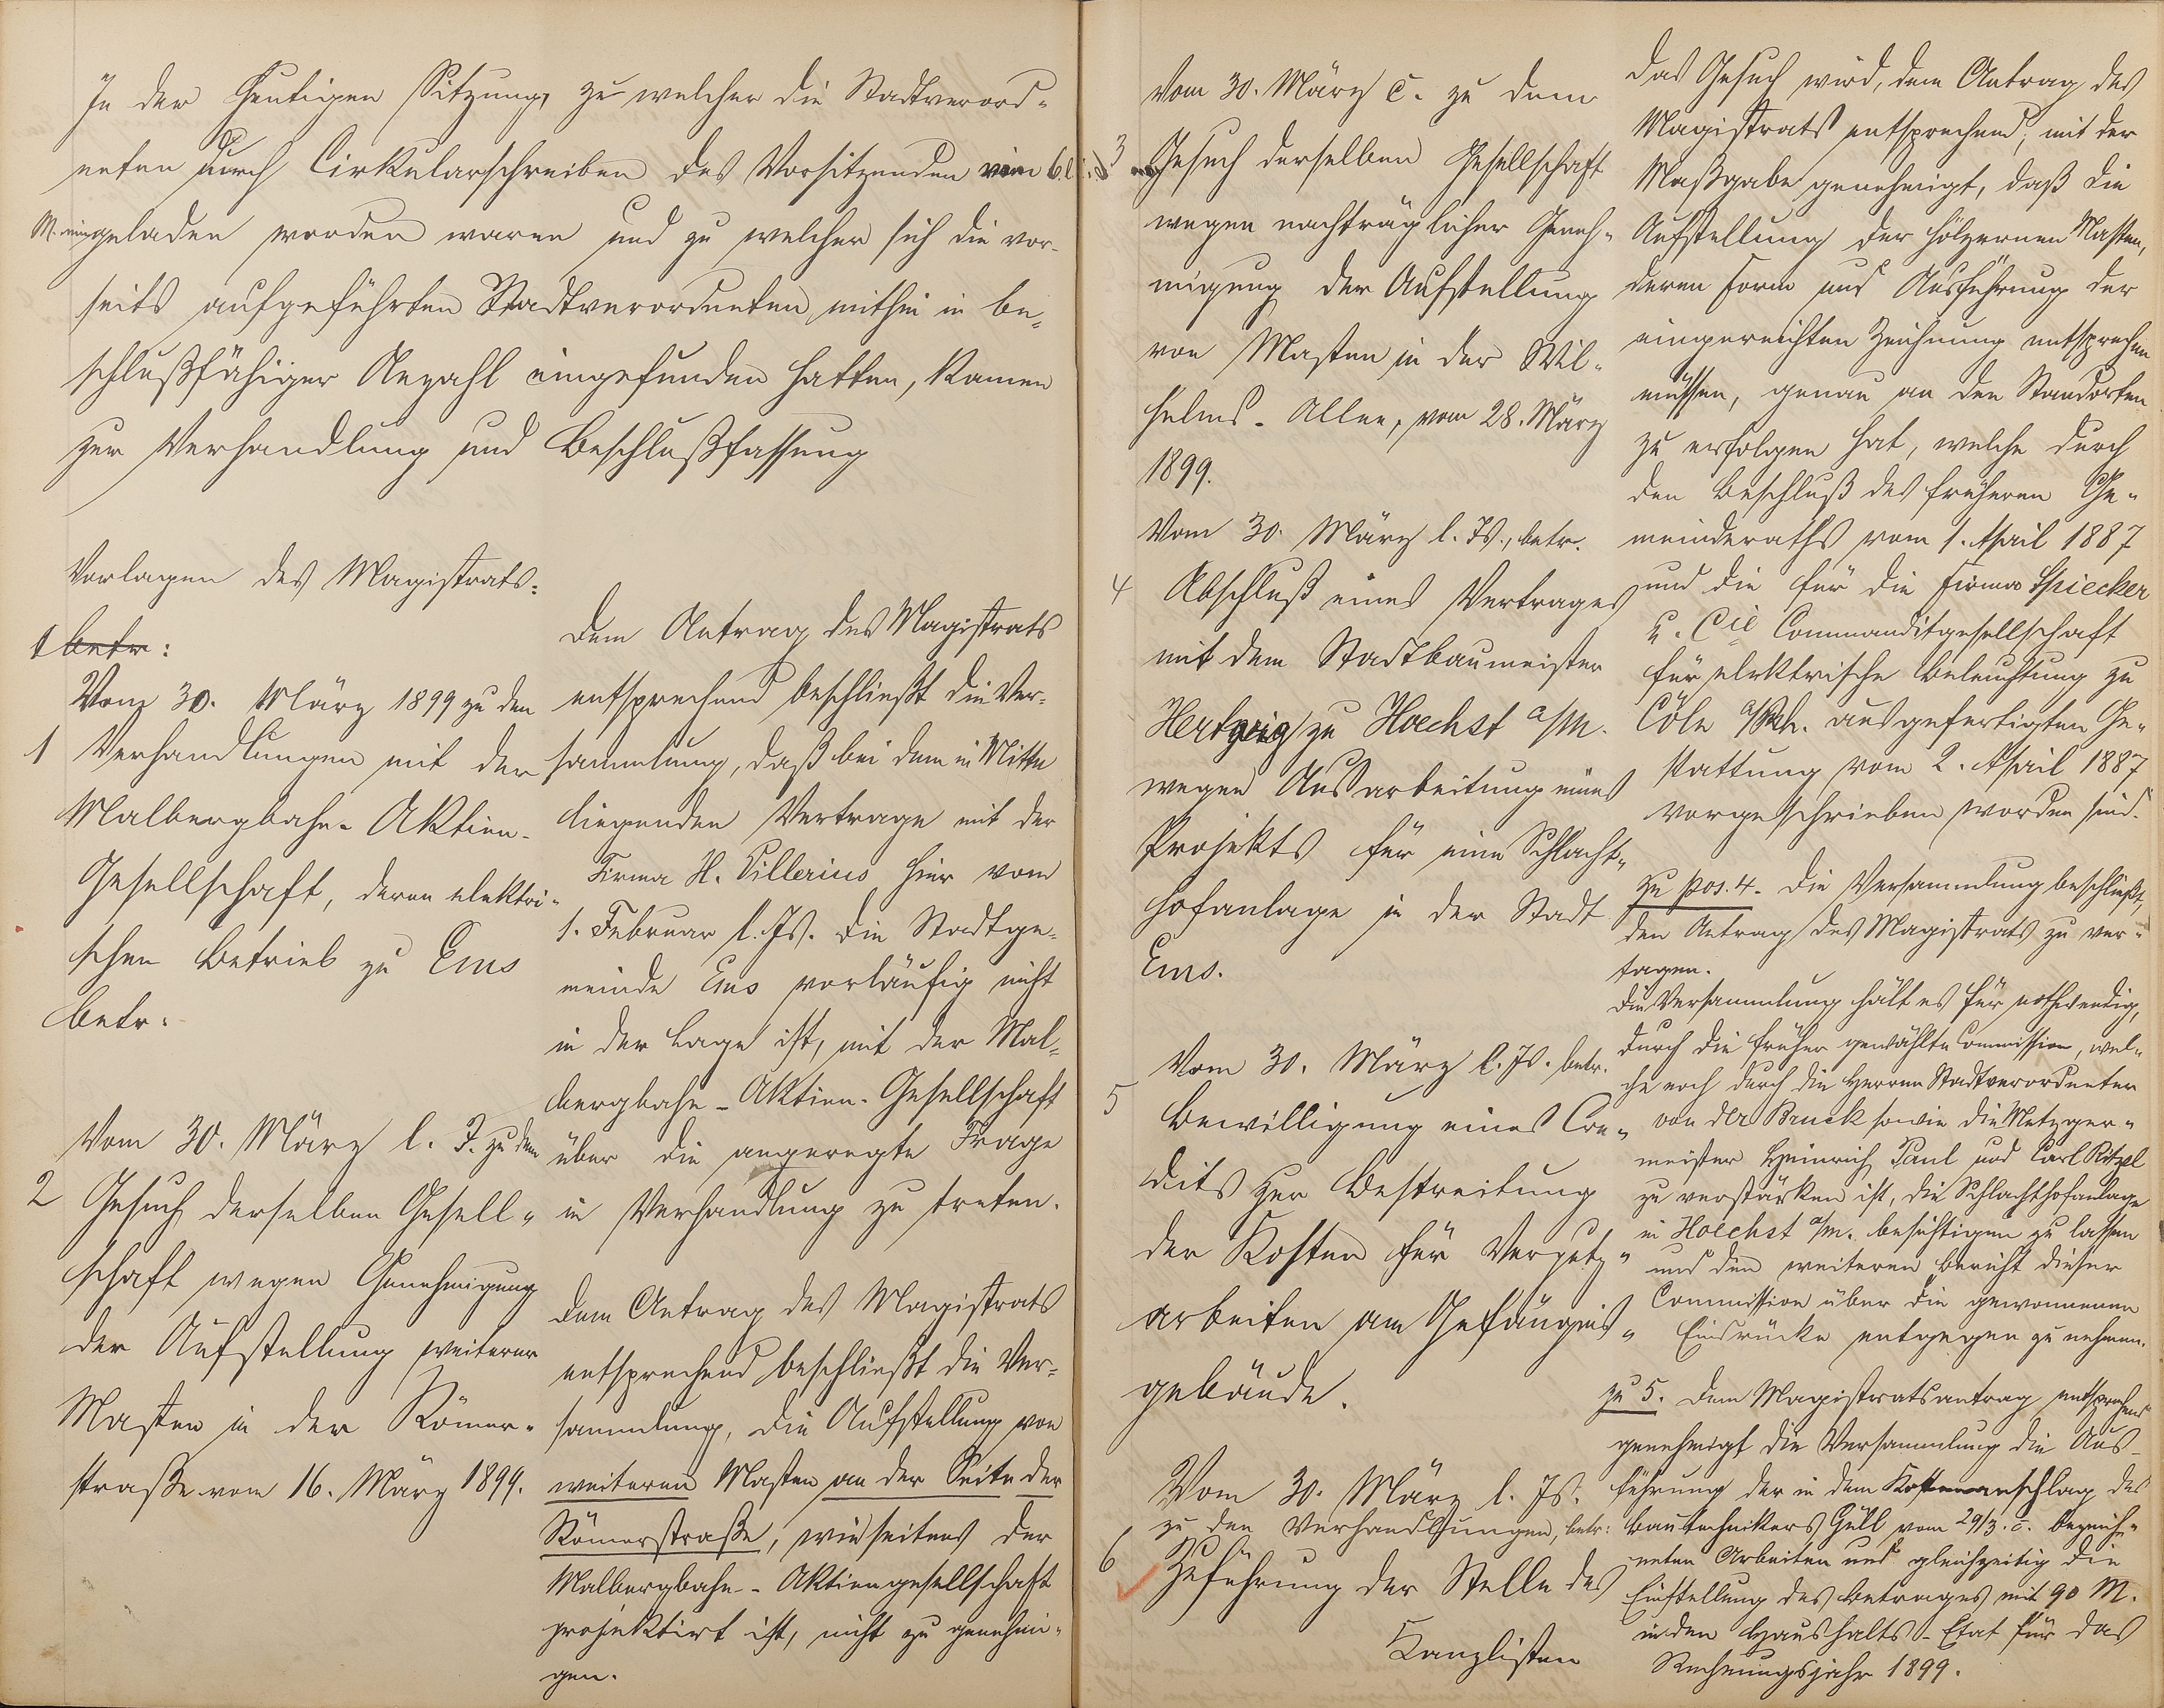 In der heutigen Sitzung, zu welcher die Stadtverord-
neten durch Cirkularschreiben des Vorsitzenden vom 6. l.
M. eingeladen worden waren und zu welcher sich die vor-
seits aufgeführten Stadtverordneten, mithin in be-
schlußfähiger Anzahl eingefunden hatten, kamen
zur Verhandlung und Beschlußfassung
Vorlagen des Magistrats:
1 betr:
Vom 30. März 1899 zu den
1 Verhandlungen mit der
Malbergbahn-Aktien-
Gesellschaft, deren elektri-
schen Betrieb zu Ems
betr.
Vom 30. März l. J. zu dem
2 Gesuch derselben Gesell-
schaft wegen Genehmigung
der Aufstellung weiterer
Masten in der Römer-
straße vom 16. März 1899.
Dem Antrag des Magistrats
entsprechend beschließt die Ver-
sammlung, daß bei dem in Mitte
liegenden Vertrage mit der
Firma H. Pillerius hier vom
1. Februar l. Js. die Stadtge-
meinde Ems vorläufig nicht
in der Lage ist, mit der Mal-
bergbahn-Aktien-Gesellschaft
über die angeregte Frage
in Verhandlung zu treten.
Dem Antrag des Magistrats
entsprechend beschließt die Ver-
sammlung, die Aufstellung von
weiteren Masten an der Seite der
Römerstraße, wie seitens der
Malbergbahn-Aktiengesellschaft
projektirt ist, nicht zu genehmi-
gen.
Vom 30. März c. zu dem
3 Gesuch derselben Gesellschaft
wegen nachträglicher Geneh-
migung der Aufstellung
von Masten in der Wil-
helms-Allee, vom 28. März
1899.
Vom 30. März l. Js., betr.
4 Abschluß eines Vertrages
mit dem Stadtbaumeister
zu Hoechst a/M.
wegen Ausarbeitung eines
Projekts für eine Schlacht-
hofanlage in der Stadt
Ems.
Vom 30. März l. Js. betr.
5 Bewilligung eines Cre-
dits zur Bestreitung
der Kosten für Verputz-
arbeiten am Gefängniß-
gebäude.
Vom 30. März l. Js.
zu den Verhandlungen, betr:
6 Zuführung der Stelle des
Kanzlisten
Das Gesuch wird, dem Antrag des
Magistrats entsprechend, mit der
Maßgabe genehmigt, daß die
Aufstellung der hölzernen Masten,
deren Form und Ausführung der
eingereichten Zeichnung entsprechen
müssen, genau an den Standorten
zu erfolgen hat, welche durch
den Beschluß des früheren Ge-
meinderaths vom 1. April 1887
und die für die Firma Spiecker
u. Cie Commanditgesellschaft
für elektrische Beleuchtung zu
Cöln a/Rh. ausgefertigten Ge-
stattung vom 2. April 1887
vorgeschrieben worden sind.
zu pos. 4. Die Versammlung beschließt,
den Antrag des Magistrats zu ver-
tagen.
Die Versammlung hält es für nothwendig,
durch die früher gewählte Commission, wel-
che noch durch die Herren Stadtverordneten
von der Bruck sowie die Metzger-
meister Heinrich Paul und Carl Ritzel
zu verstärken ist, die Schlachthofanlage
in Hoechst a/M. besichtigen zu lassen
und den weiteren Bericht dieser
Commission über die gewonnenen
Eindrücke entgegen zu nehmen.
zu 5. Dem Magistratsantrag entsprechend
genehmigt die Versammlung die Aus-
führung der in dem Kostenanschlag des
Bautechnikers Güll vom 29/3. c. bezeich-
neten Arbeiten und gleichzeitig die
Einstellung des Betrages mit 90 M.
in den Haushalts-Etat für das
Rechnungsjahr 1899.